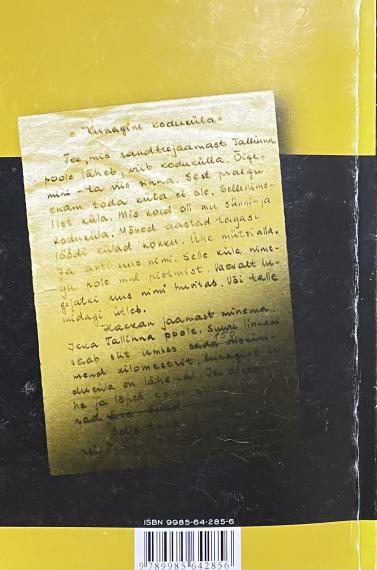 "Kunagine koduküla"
Tee, mis raudteejaamast Tallinna
poole läheb, viib kodukülla. Õige-
mini - ta viis sinna. Sest praegu
enam toda küla ei ole. Sellenime-
list küla. Mis kord oli mu sünni- ja
koduküla. Mõned aastad tagasi
löödi külad kokku. Ühe mütsi alla.
Ja anti uus nimi. Selle küla nime-
ga pole mul pistmist. Vaevalt lu-
gejatki uus nimi huvitab. Või talle
midagi ütleb.
Hakkan jaamast minema.
Ikka Tallinna poole. Suure linnani
saab siit umbes
mend kilomeetrit. Kunagine ko-
duküla on lähemal. Tee
he ja lõpeb
ISBN 9985-64-285-6
9789985642856